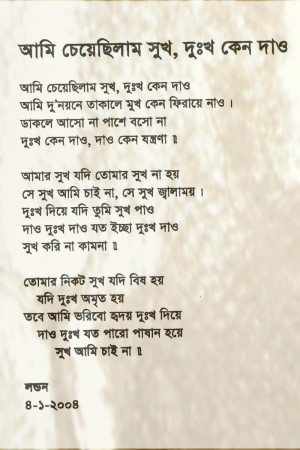 আমি চেয়েছিলাম সুখ, দুঃখ কেন দাও
আমি চেয়েছিলাম সুখ, দুঃখ কেন দাও
আমি দু'নয়নে তাকালে মুখ কেন ফিরায়ে নাও ।
ডাকলে আসো না পাশে বসো না
দুঃখ কেন দাও, দাও কেন যন্ত্রণা ॥
আমার সুখ যদি তোমার সুখ না হয়
সে সুখ আমি চাই না, সে সুখ জ্বালাময় ।
দুঃখ দিয়ে যদি তুমি সুখ পাও
দাও দুঃখ দাও যত ইচ্ছা দুঃখ দাও
সুখ করি না কামনা ॥
তোমার নিকট সুখ যদি বিষ হয়
যদি দুঃখ অমৃত হয়
তবে আমি ভরিবো হৃদয় দুঃখ দিয়ে
দাও দুঃখ যত পারো পাষান হয়ে
সুখ আমি চাই না ॥
লন্ডন
৪-১-২০০৪